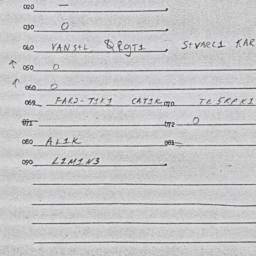 020 —
030 O
040 VANSTL QRGTI STVARCI KAR
050 O
060 O
069 FARD-TIKI CATIK 070 TESRPKI
071 072 O
080 ALIK 081
090 LIMIN3